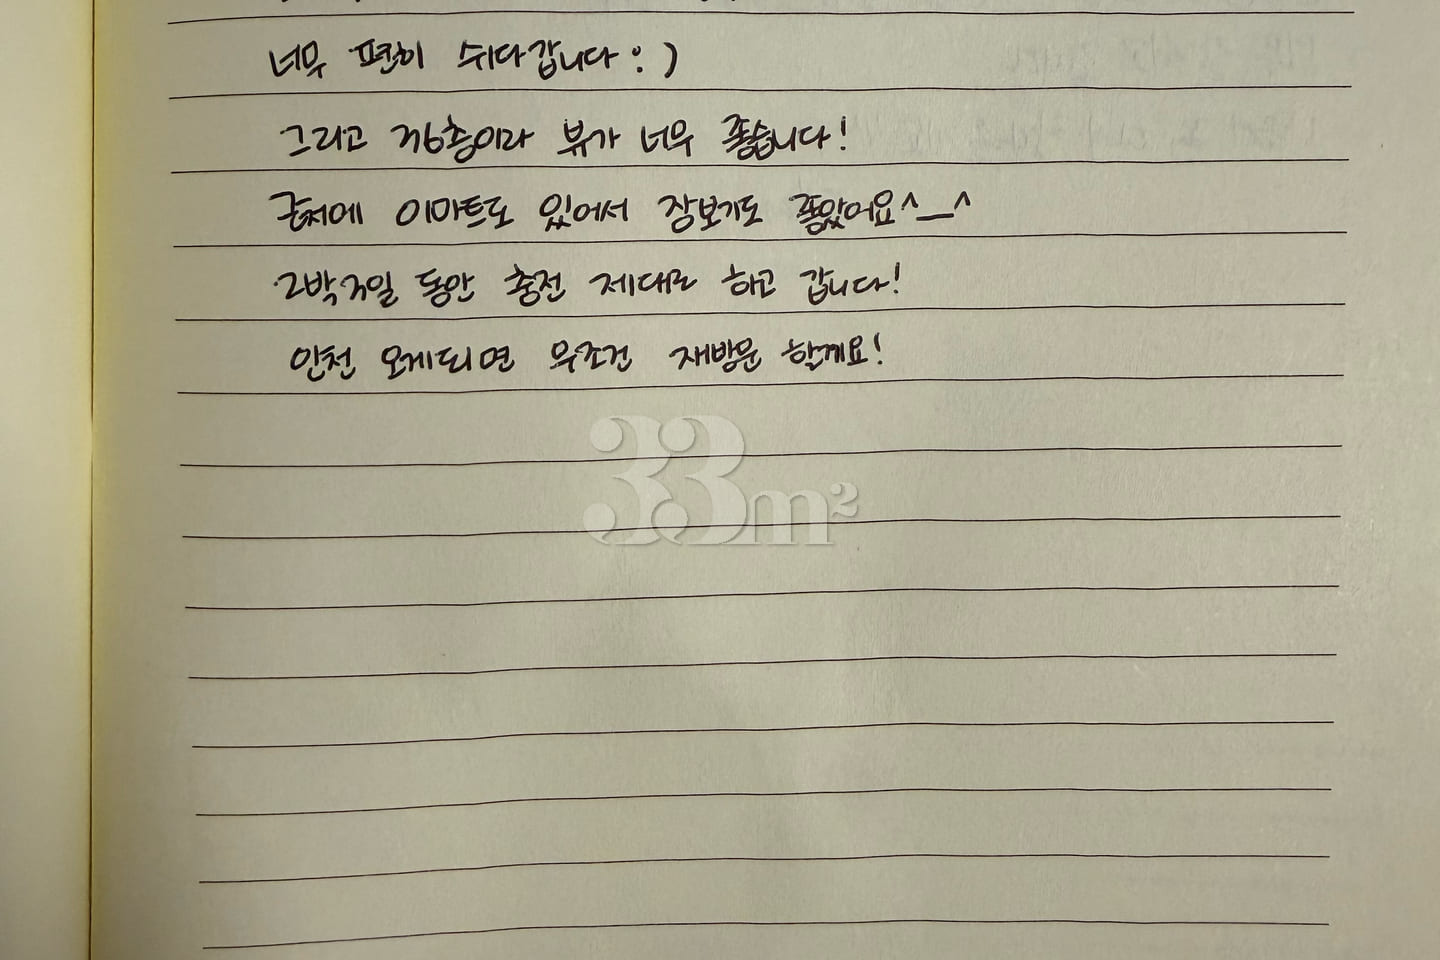 너무 편히 쉬다갑니다 : )
그리고 36층이라 뷰가 너무 좋습니다!
근처에 이마트도 있어서 장보기도 좋았어요^__^
2박3일 동안 충전 제대로 하고 갑니다!
인천 오게되면 무조건 재방문 할게요!
33m²